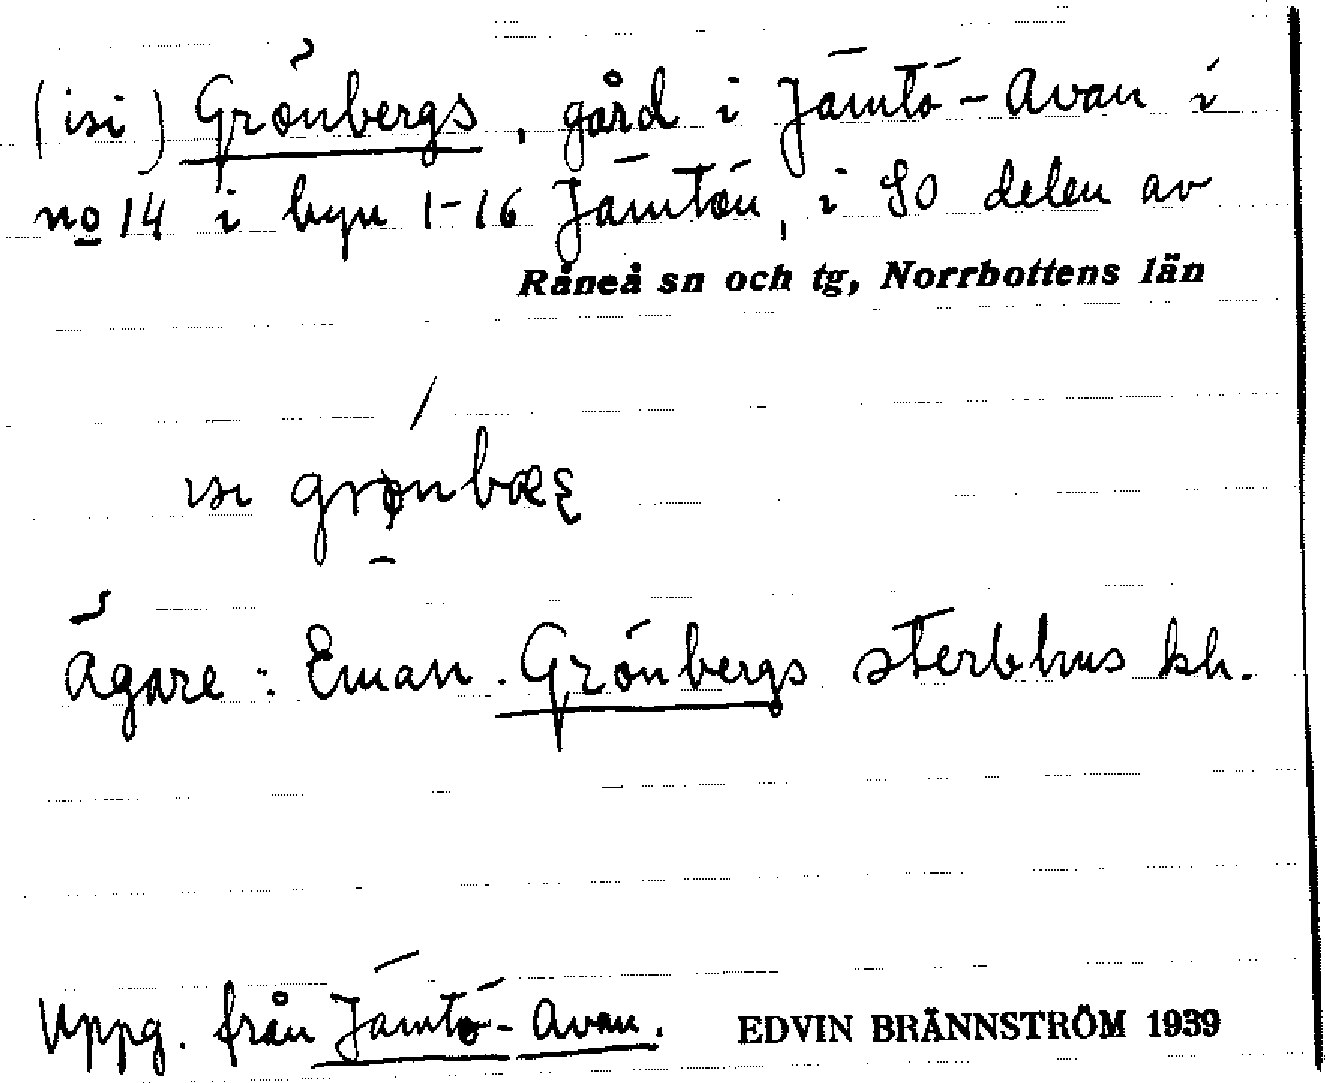 (isi) Grönbergs, gård i Jämtö-Avan i
no 14 i byn 1-16 Jämtön, i SO delen av
Råneå sn och tg, Norrbottens län
ısı
Ägare: Eman. Grönbergs sterbhus kh.
Uppg. från Jämtö-Avan. EDVIN BRÄNNSTRÖM 1939